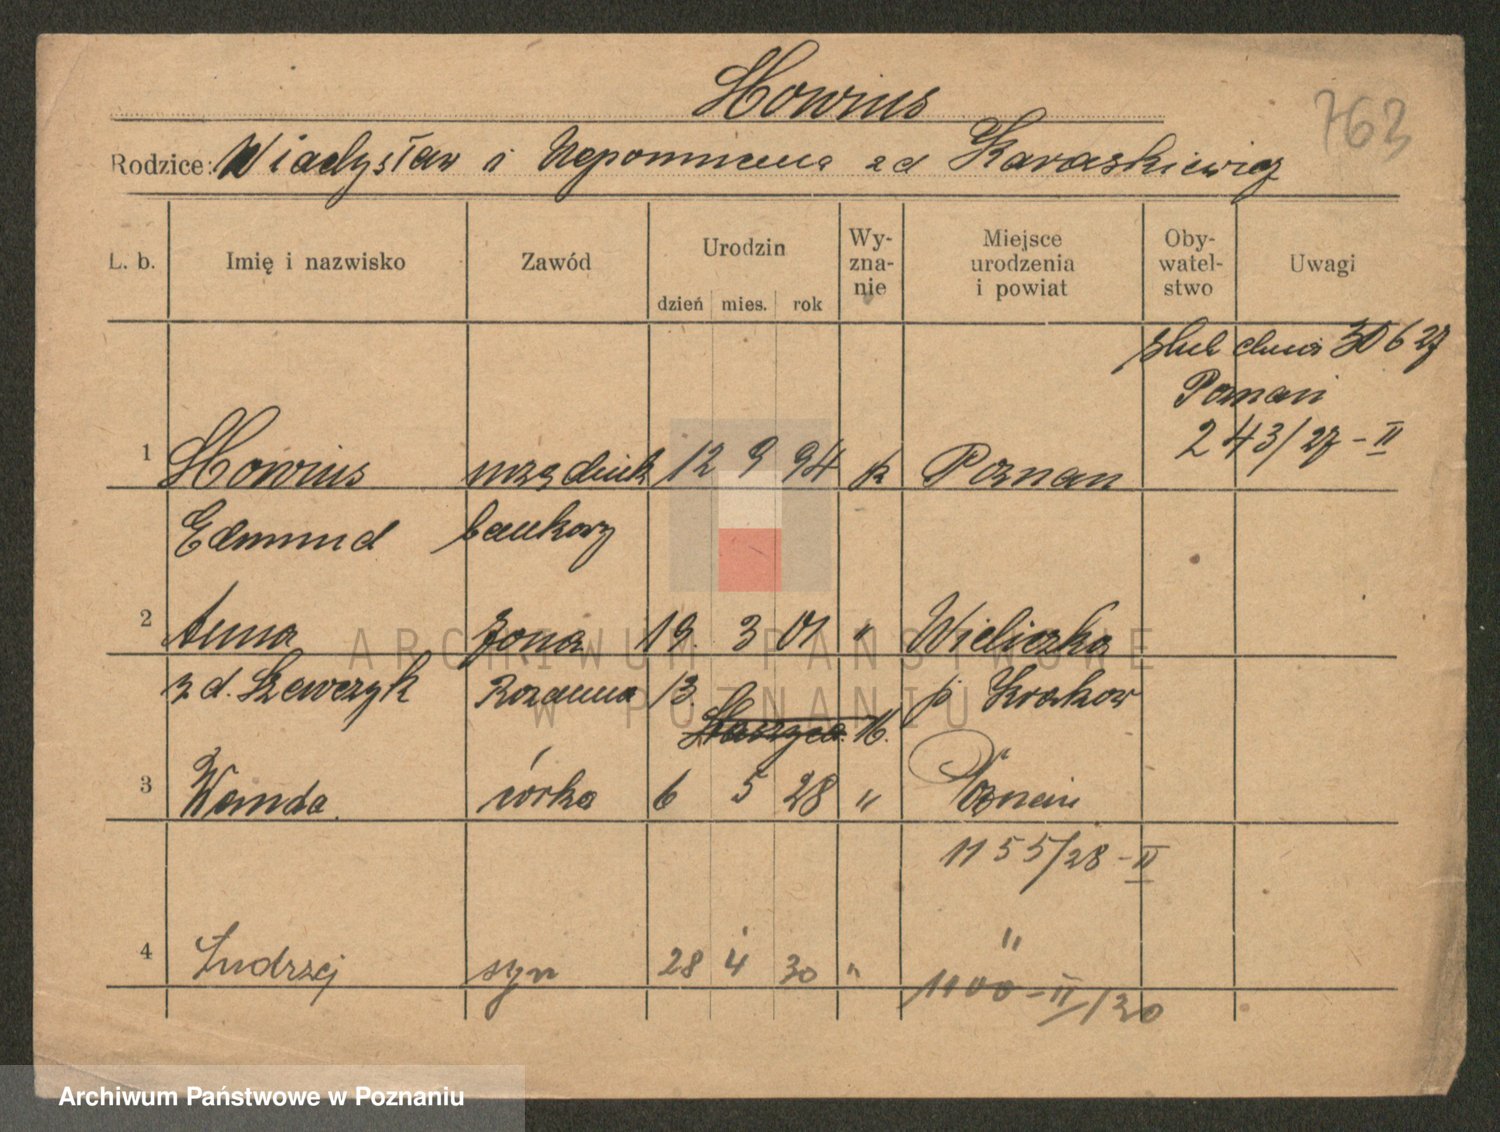 Howius
763
Rodzice: Władysław i Nepomucena z d Karaśkiewicz
L. b. Imię i nazwisko Zawód Urodzin dzień mies. rok Wy-zna-nie Miejsce urodzenia i powiat Oby-watel-stwo Uwagi
ślub dnia 30 6 27
Poznań
243/27 - II
1 Howius urzędnik 12 9 94 k Poznań
Edmund bankowy
2 Anna żona 19. 3 01 " Wieliczka
z d. Szewczyk 13. p Krakow
16.
3 Wanda córka 6 5 28 " Poznań
1155/28 - II
4 Andrzej syn 28 4 30 " "
1100 - II/30
ARCHIWUM PAŃSTWOWE
W POZNANIU
Archiwum Państwowe w Poznaniu